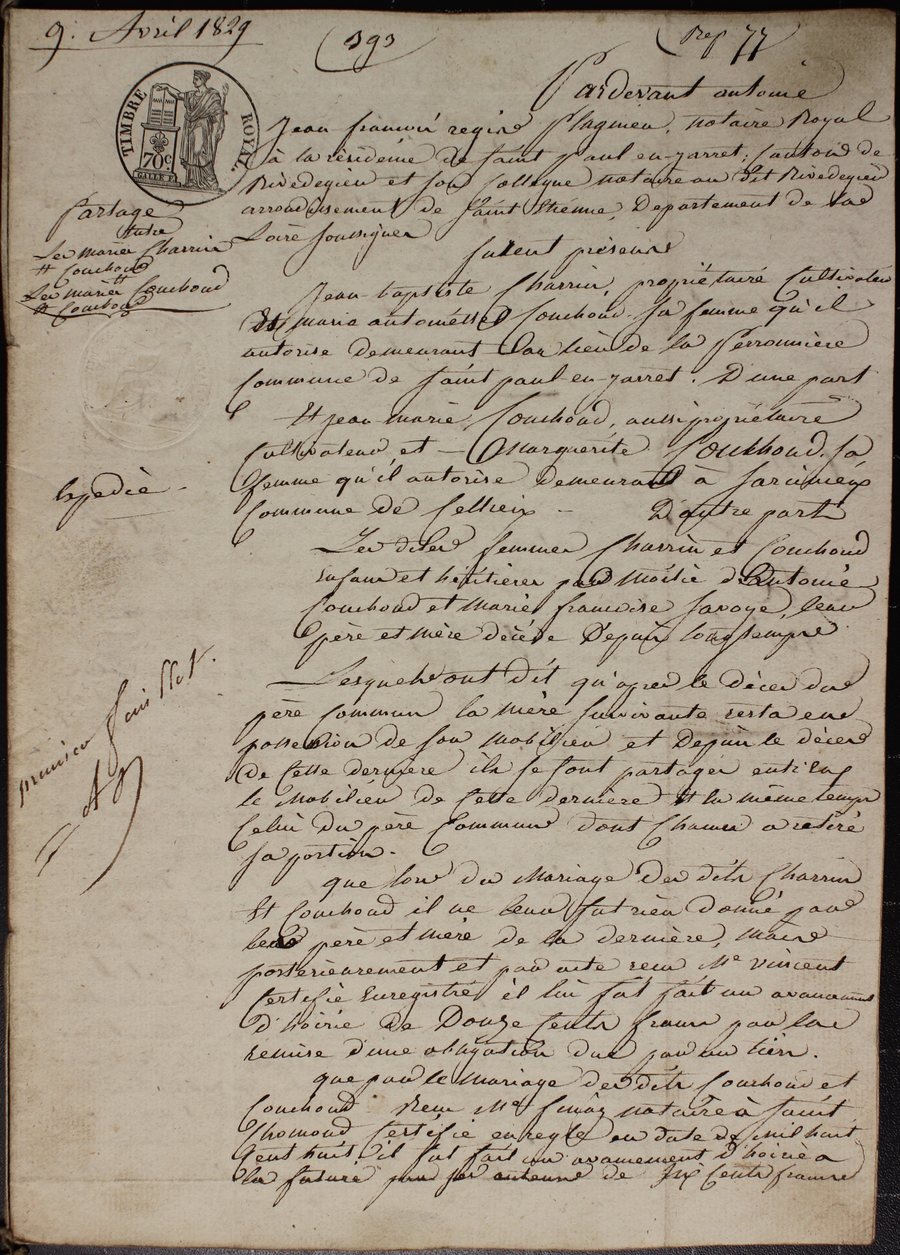 9. Avril 1829
393
Rep 77
Pardevant antoine
TIMBRE ROYAL
70c
Jean françois regis Flagmeu, notaire Royal
à la résidence de Saint paul en-jarret, canton de
Rivedegier et son Collegue notaire au dit Rivedegier
arrondissement de Saint Etienne, Departement de La
Loire soussignés
Partage
Entre
Les mariés Charrin
et Couchoud
Les mariés Couchoud
et Couchoud
furent présens
Jean baptiste Charrin, propriétaire Cultivateur
Et marie antoinette Couchoud sa femme qu'il
autorise demeurant au lieu de la Perronnière
Commune de Saint paul en-jarret. D'une part
Et jean marie Couchoud, aussi propriétaire
Cultivateur, et Marguerite Couchoud sa
femme qu'il autorise demeurant à Sarcinieux
Commune de Cellieu D'autre part
Expedié
Les dites femmes Charrin et Couchoud
enfans et héritières par moitié d'antoine
Couchoud et marie francoise Savoye, leur
père et mère décédé Depuis longtemps
Lesquels ont dit qu'apres le décès du
père commun la mère survivante resta en
possession de son mobilier et Depuis le décès
de cette dernière ils se sont partagés entr'eux
le mobilier de cette dernière et en même temps
Celui du père Commun dont Chacun a retiré
sa portion.
que lors du mariage des dits Charrin
Et Couchoud il ne leur fut rien donné par
les père et mère de la dernière, mais
posterieurement et par acte recu Me vincent
Certifié Enregistré, il lui fut fait un avancement
d'hoirie de Douze Cents francs par la
remise d'une obligation due par un tiers.
que par le mariage des dits Couchoud et
Couchoud recu Me finaz notaire à Saint
Chomond Certifié en regle en date de mil huit
Cent huit, il fut fait un avancement d'hoirie a
la future par ses de six Cents francs
premier feuillet.